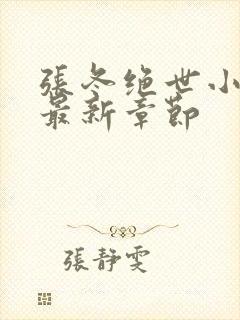 張冬绝世小
最新章節
張静雯